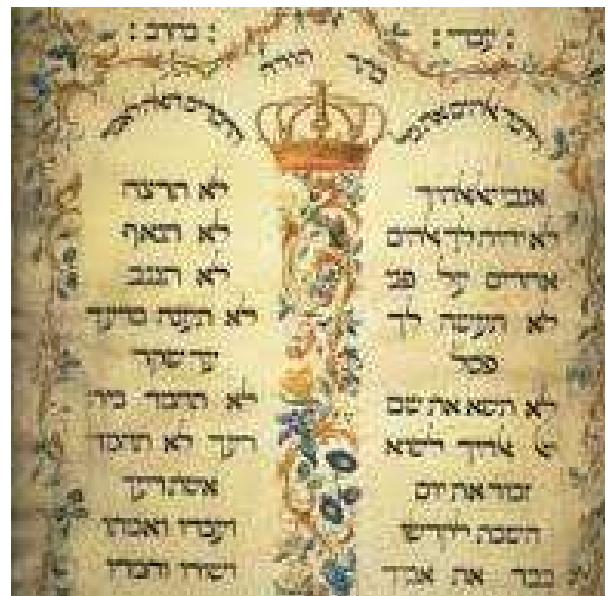 : בחרב :
כתר תורה
וידבר אלהים את כל
אנכי יי אלהיך
לא יהיה לך אלהים
אחרים על פני
לא תעשה לך
פסל
לא תשא את שם
יי אלהיך לשוא
זכור את יום
השבת לקדשו
כבד את אביך
הדברים האלה לאמר
לא תרצח
לא תנאף
לא תגנב
לא תענה ברעך
עד שקר
לא תחמד בית
רעך לא תחמד
אשת רעך
ועבדו ואמתו
ושורו וחמרו